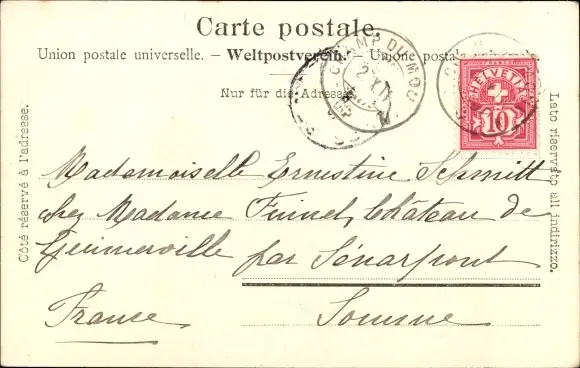 Carte postale.
Union postale universelle. – Weltpostverein. – Unione postale universale.
Nur für die Adresse.
CHAMP DU MOU
HELVETIA
FRANCO
10
Côté réservé à l'adresse.
Lato riservato all indirizzo.
Mademoiselle Ernestine Schmitt
chez Madame Château de
Guimerville par Sénarpont
France Somme